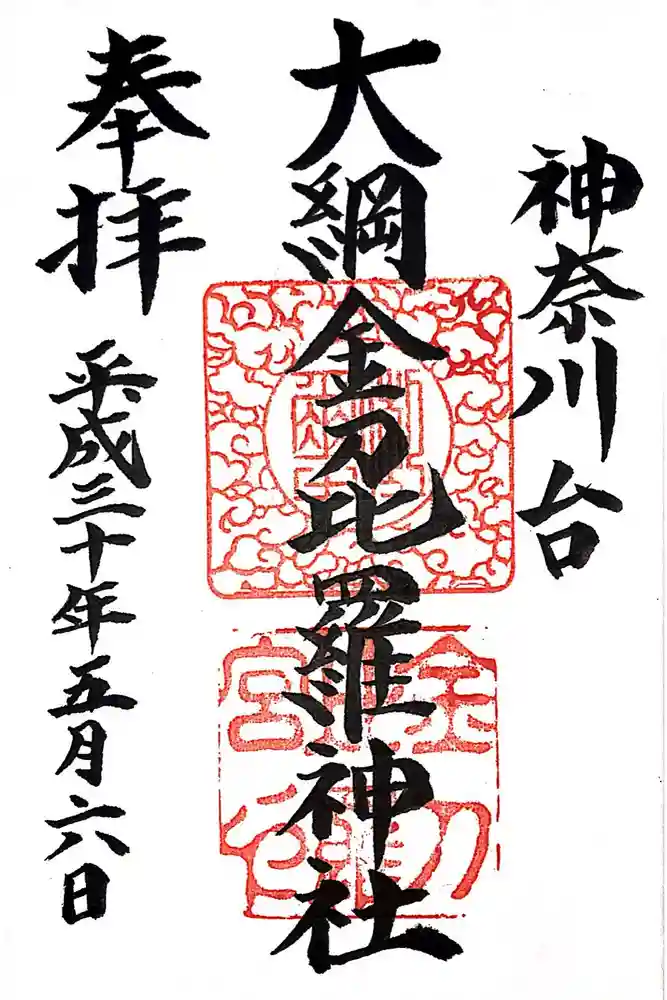 神奈川台
大綱金刀比羅神社
奉拝
平成三十年五月六日